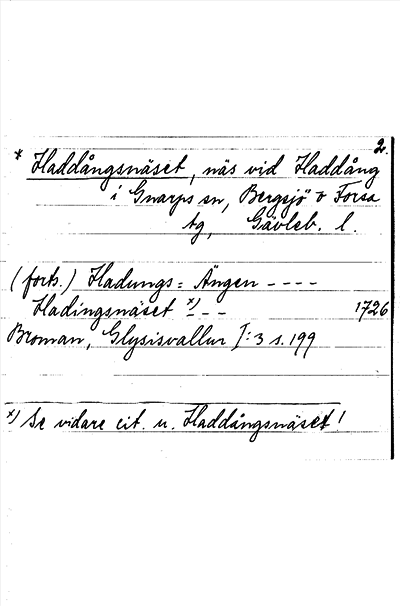 2.
* Haddångsnäset, näs vid Haddång
i Gnarps sn, Bergsjö o Forsa
tg, Gävleb. l.
(forts.) Hadungs= Ängen - - - -
Hadingsnäset x) - - 1726
Broman, Glysisvallur I:3 s. 199
x) Se vidare cit. u. Haddångsnäset!